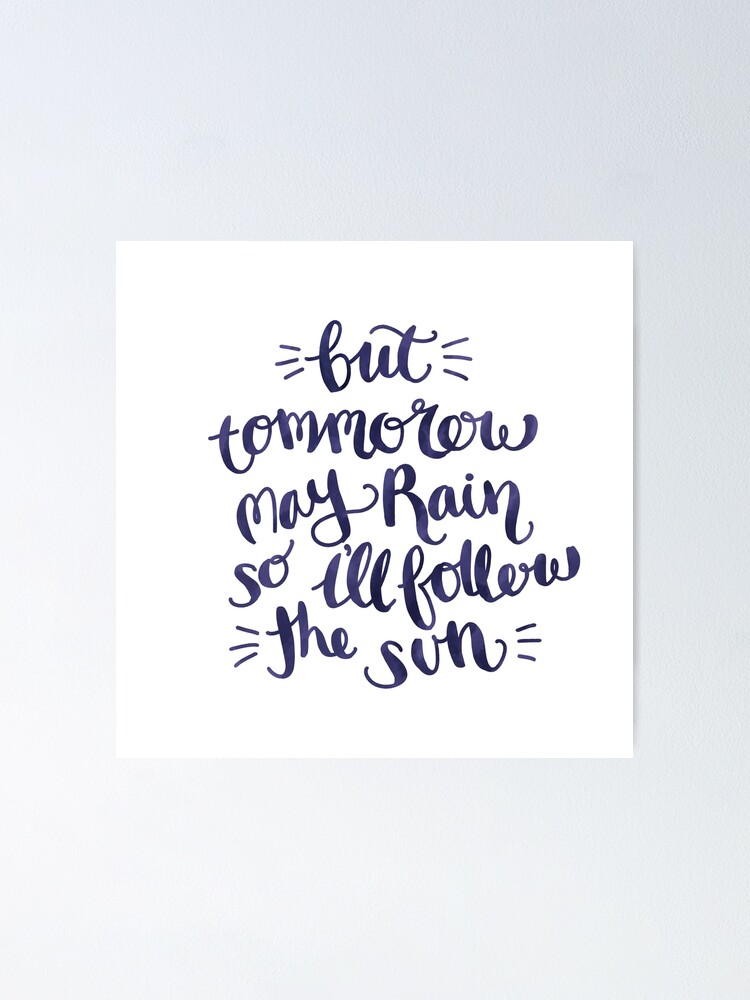 but
tommorow
may Rain
so i'll follow
the sun